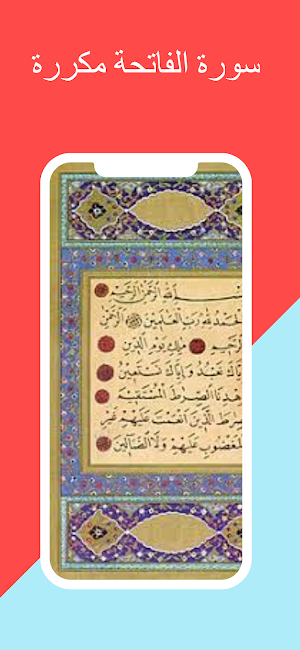 سورة الفاتحة مكررة
سْمِ اللهِ الرَّحْمٰنِ الرَّحِيمِ
لْحَمْدُ لِلهِ رَبِّ الْعَالَمِينَ الرَّحْمٰنِ
لرَّحِيمِ مَالِكِ يَوْمِ الدِّينِ
يَّاكَ نَعْبُدُ وَاِيَّاكَ نَسْتَعِينُ
هْدِنَا الصِّرَاطَ الْمُسْتَقِيمَ
رَاطَ الَّذِينَ اَنْعَمْتَ عَلَيْهِمْ غَيْرِ
لْمَغْضُوبِ عَلَيْهِمْ وَلَا الضَّالِّينَ